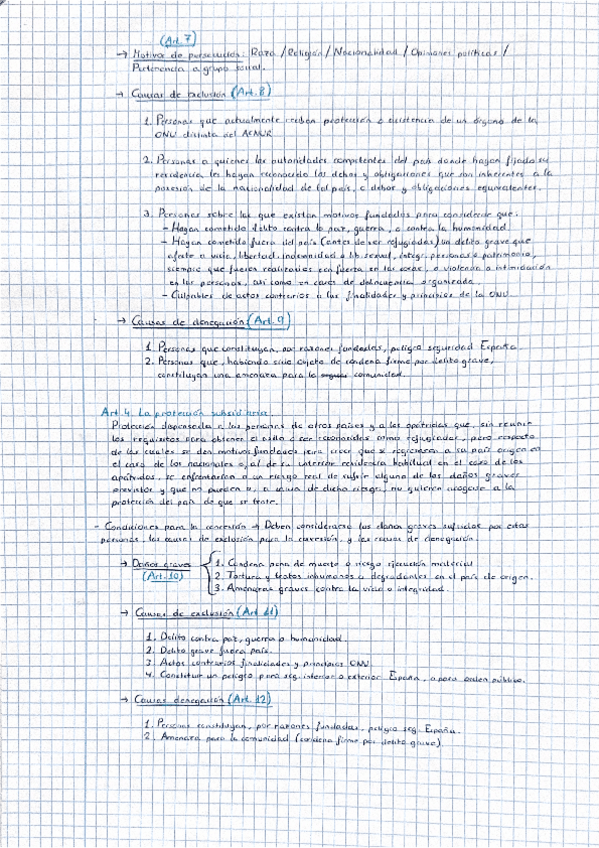 (Art. 7)
→ Motivos de persecución: Raza / Religión / Nacionalidad / Opiniones políticas /
Pertenencia a grupo social.
→ Causas de exclusión (Art. 8)
1. Personas que actualmente reciban protección o asistencia de un órgano de la
ONU distinto del ACNUR
2. Personas a quienes las autoridades competentes del país donde hayan fijado su
residencia les hayan reconocido los dchos y obligaciones que son inherentes a la
posesión de la nacionalidad de tal país, o dchos y obligaciones equivalentes.
3. Personas sobre las que existan motivos fundados para considerar que:
- Hayan cometido delito contra la paz, guerra, o contra la humanidad.
- Hayan cometido fuera del país (antes de ser refugiados) un delito grave que
afecte a vida, libertad, indemnidad o lib. sexual, integr. personas o patrimonio,
siempre que fuesen realizados con fuerza en las cosas, o violencia o intimidación
en las personas, así como en casos de delincuencia organizada.
- Culpables de actos contrarios a las finalidades y principios de la ONU.
→ Causas de denegación (Art. 9)
1. Personas que constituyan, por razones fundadas, peligro seguridad España.
2. Personas que, habiendo sido objeto de condena firme por delito grave,
constituyan una amenaza para la comunidad.
Art. 4. La protección subsidiaria.
Protección dispensada a las personas de otros países y a los apátridas que, sin reunir
los requisitos para obtener el asilo o ser reconocidas como refugiadas, pero respecto
de las cuales se den motivos fundados para creer que si regresasen a su país origen en
el caso de los nacionales o, al de su anterior residencia habitual en el caso de los
apátridas, se enfrentarían a un riesgo real de sufrir alguno de los daños graves
previstos y que no pueden o, a causa de dicho riesgo, no quieren acogerse a la
protección del país de que se trate.
- Condiciones para la concesión → Deben considerarse los daños graves sufridos por estas
personas, las causas de exclusión para la concesión, y las causas de denegación.
→ Daños graves
(Art. 10)
1. Condena pena de muerte o riesgo ejecución material
2. Tortura y tratos inhumanos o degradantes en el país de origen.
3. Amenazas graves contra la vida o integridad.
→ Causas de exclusión (Art. 11)
1. Delito contra paz, guerra o humanidad.
2. Delito grave fuera país.
3. Actos contrarios finalidades y principios ONU.
4. Constituir un peligro para seg. interior o exterior España, o para orden público.
→ Causas denegación (Art. 12)
1. Personas constituyan, por razones fundadas, peligro seg. España.
2. Amenaza para la comunidad (condena firme por delito grave)